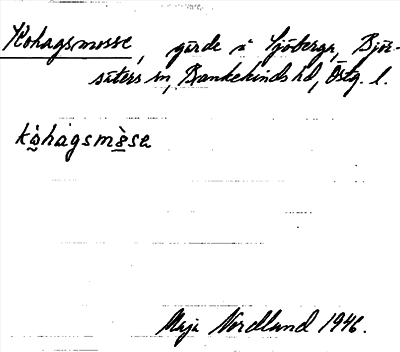 Kohagsmosse, gärde i Sjöberga, Björ-
säters sn, Bankekinds hd, Östg. l.
kò̤hágsmò̤sa
Maja Nordlund 1946.